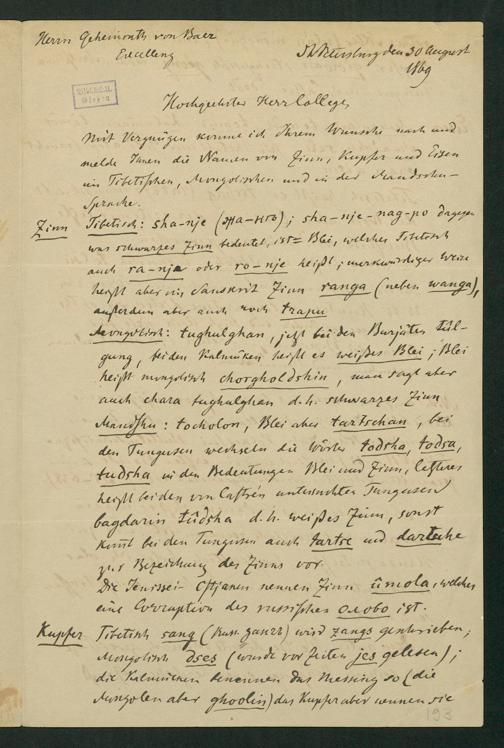 Herrn Geheimrath von Baer
Excellenz
St. Petersburg den 30 August
1869
Hochgeehrter Herr College,
Mit Vergnügen komme ich Ihrem Wunsche nach und
melde Ihnen die Namen von Zinn, Kupfer und Eisen
im Tibetischen, Mongolischen und in der Mandschu-
Sprache.
Zinn Tibetisch: sha-nje; sha-nje-nag-po dagegen
was schwarzes Zinn bedeutet, ist = Blei, welches Tibetisch
auch ra-nje oder ro-nje heißt; merkwürdiger Weise
heißt aber im Sanskrit Zinn ranga (neben wanga),
außerdem aber auch noch trapu
Mongolisch: tughulghan, jetzt bei den Burjäten
gung, bei den Kalmüken heißt es weißes Blei; Blei
heißt mongolisch chorgholdshin, man sagt aber
auch chara tughulghan d.h. schwarzes Zinn
Mandshu: tocholon, Blei aber tartschan, bei
den Tungusen wechseln die Wörter todsha, todsa,
tudsha in den Bedeutungen Blei und Zinn, letzteres
heißt bei den von Castrén untersuchten Tungusen
bagdarin tudsha d.h. weißes Zinn, sonst
kommt bei den Tungusen auch tartse und
zur Bezeichnung des Zinns vor.
Die Jenissei-Ostjaken nennen Zinn welches
eine Corruption des russischen олово ist.
Kupfer Tibetisch sang wird zangs geschrieben;
Mongolisch dses (wurde vor Zeiten jes gelesen);
die Kalmüken benennen das Messing so (die
Mongolen aber ghoolin) das Kupfer aber nennen sie
193